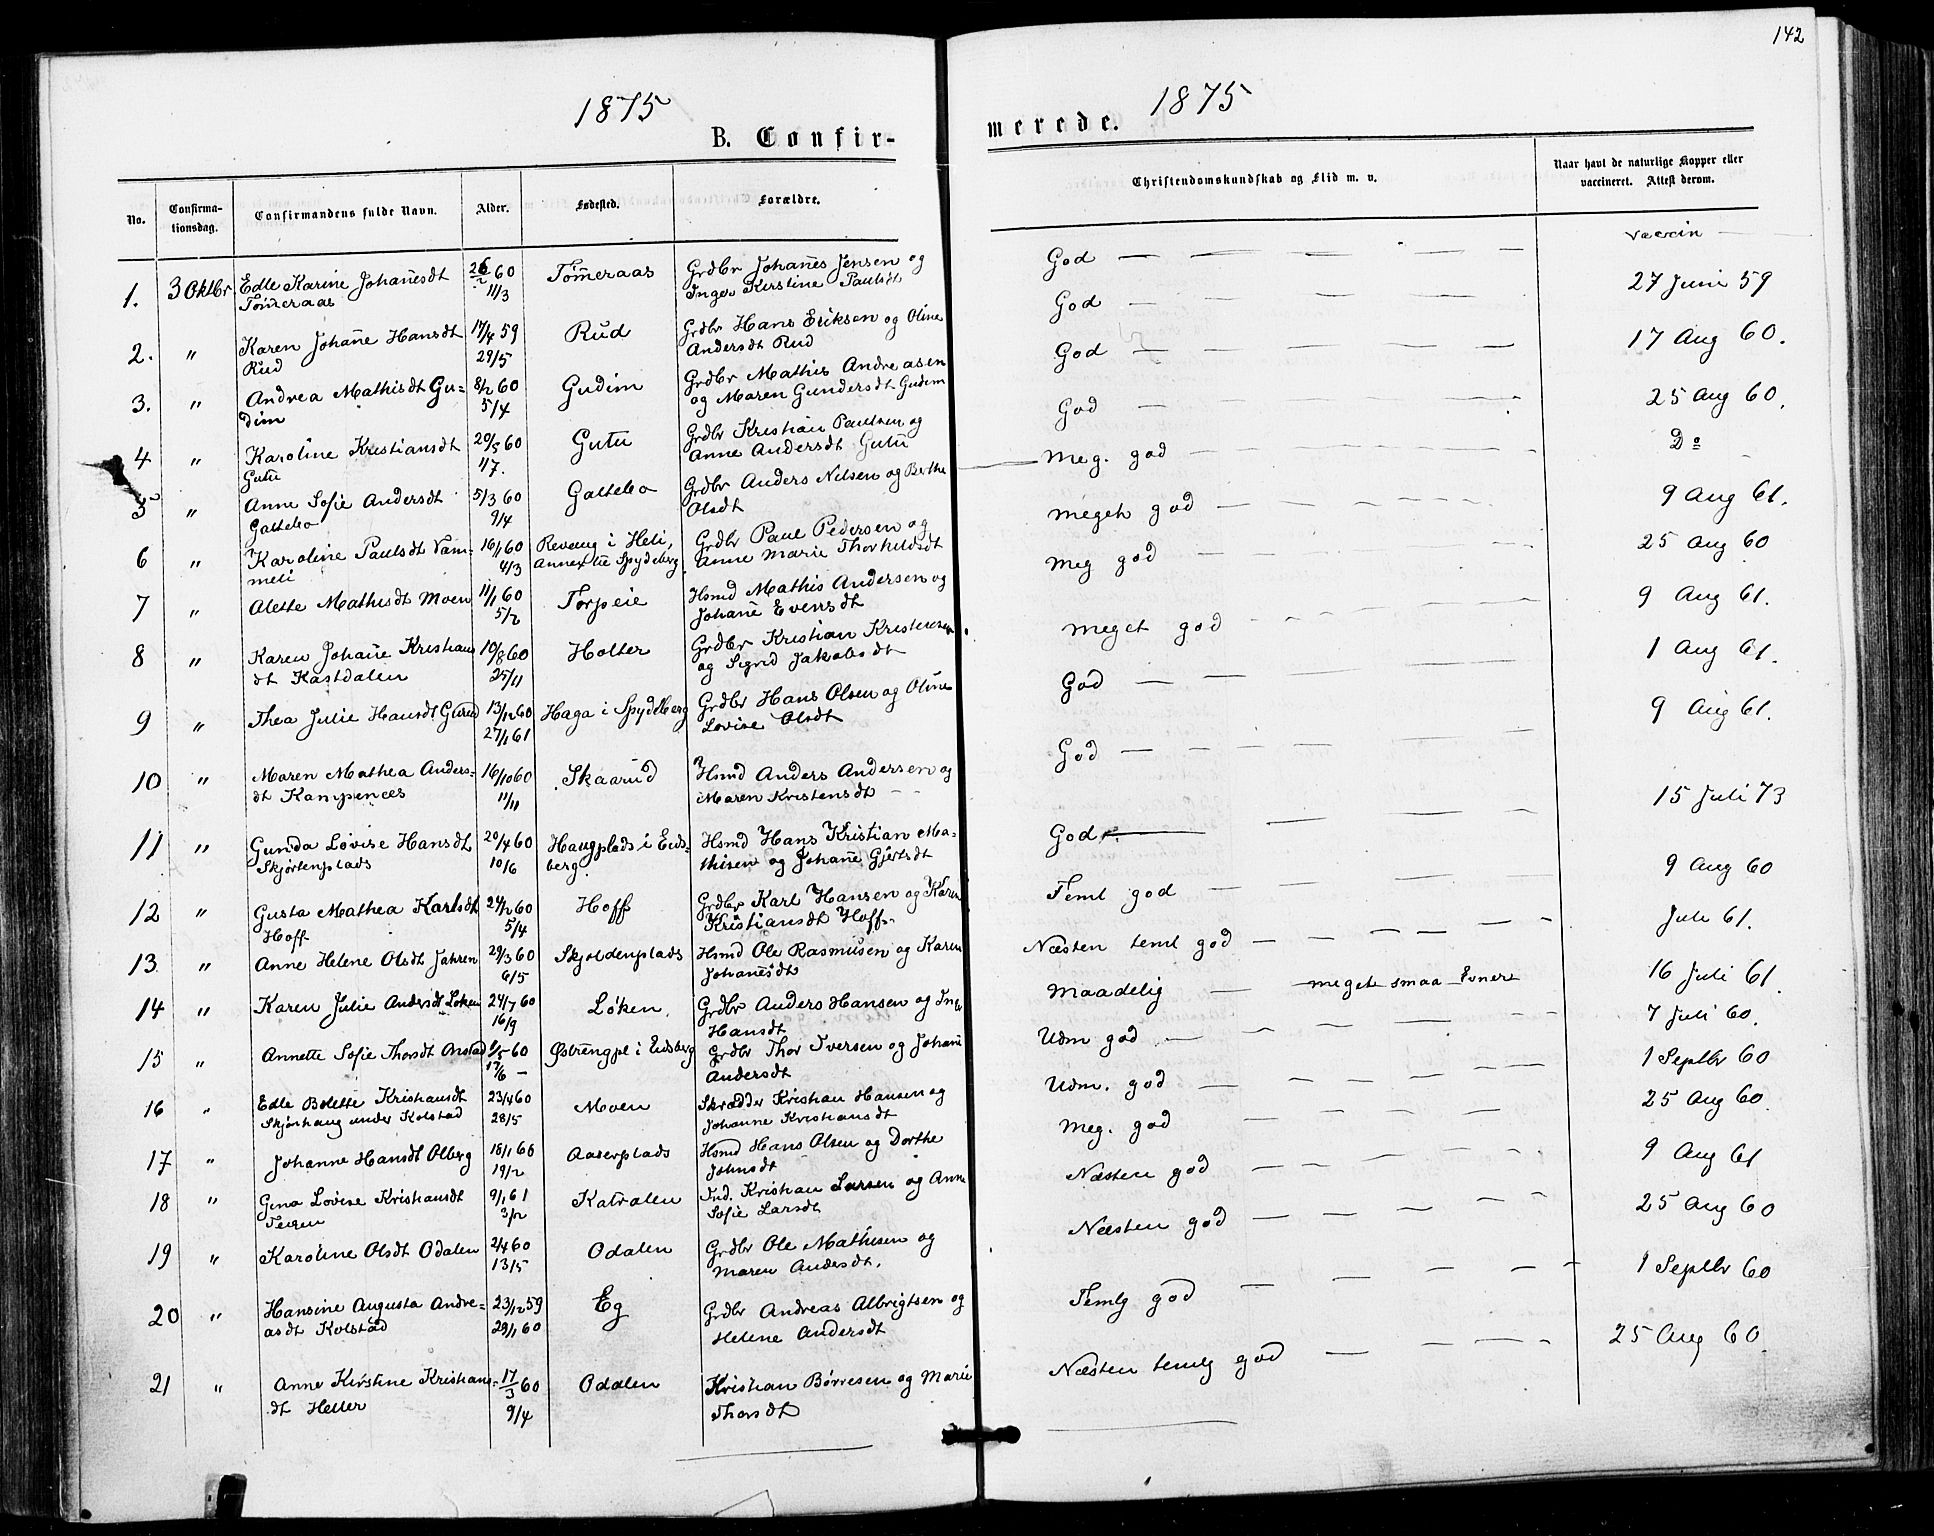 142
1875
1875
B. Confir-
merede.
No.
Confirma-
tionsdag.
Confirmandens fulde Navn.
Alder.
Fødested.
Forældre.
Christendomskundskab og Flid m. v.
Naar havt de naturlige Kopper eller
vaccineret. Attest derom.
1. 3 Oktbr Edle Karine Johañesdt 26/2 60 Tømeraas Grdbr Johañes Jensen og
Tømeraas 11/3 Inger Kirstine Paulsdt
2. " Karen Johañe Hansdt 17/4 59 Rud Grdbr Hans Eriksen og Oline
Rud 29/5 Andersdt Rud
3. " Andrea Mathisdt Gu- 8/2 60 Gudim Grdbr Mathis Andreasen
dim 5/4 og Maren Gundersdt Gudim
4 " Karoline Kristiansdt 20/5 60 Gutu Grdbr Kristian Paulsen og
Gutu 1/7. Anne Andersdt Gutu
5 " Anne Sofie Andersdt 5/3 60 Galtebo Grdbr Anders Nilsen og Berthe
Galtebo 9/4 Olsdt
6 " Karoline Paulsdt Vam- 16/1 60 Revaug i Heli, Grdbr Paul Pedersen og
meli 4/3 Annex til Spydeberg Anne Marie Thorkildsdt
7 " Alette Mathisdt Moen 11/1 60 Torpeie Hsmd Mathis Andersen og
5/2 Johañe Evensdt
8 " Karen Johañe Kristians 10/8 60 Holter Grdbr Kristian Kristensen
dt Kastdalen 25/11 og Sigrid Jakobsdt
9 " Thea Julie Hansdt Glerud 13/12 60 Haga i Spydeberg Grdbr Hans Olsen og Oline
27/1 61 Lovise Olsdt
10 " Maren Mathea Anders- 16/10 60 Skaarud Hsmd Anders Andersen og
dt Kampenæs 11/11 Maren Kristensdt
11 " Gunda Lovise Hansdt 20/4 60 Haugplads i Eids- Hsmd Hans Kristian Ma-
Skjørtenplads 10/6 berg. thisen og Johañe Gjertsdt
12 " Gusta Mathea Karlsdt 24/2 60 Hoff Grdbr Karl Hansen og Karen
Hoff 5/4 Kristiansdt Hoff
13 " Anne Helene Olsdt Jahren 29/3 60 Skjoldenplads Hsmd Ole Rasmusen og Karen
6/5 Johañesdt
14 " Karen Julie Andersdt Løken 24/7 60 Løken Grdbr Anders Hansen og Inge
16/9 Hansdt
15 " Annette Sofie Thorsdt Onstad 1/5 60 Østrengpl i Eidsberg Grdbr Thor Iversen og Johañe
17/6 – Andersdt
16 " Edle Bolette Kristiansdt 23/4 60 Moen Skrædder Kristian Hansen og
Skjørhaug under Kolstad 28/5 Johanne Kristiansdt
17 " Johanne Hansdt Olberg 18/1 60 Aaserplads Hsmd Hans Olsen og Dorthe
19/2 Johnsdt
18 " Gina Lovise Kristiansdt 9/1 61 Katralen Ind. Kristian Larsen og Anne
Teigen 3/2 Sofie Larsdt
19 " Karoline Olsdt Odalen 2/4 60 Odalen Grdbr Ole Mathisen og
13/5 Maren Andersdt.
20 " Hansine Augusta Andre- 23/12 59 Eg Grdbr Andreas Albrigtsen og
asdt Kolstad 29/1 60 Helene Andersdt
21 " Anne Kirstine Kristians- 17/3 60 Odalen Kristian Børresen og Marie
dt Heller 9/4 Thorsdt
God
vaccin
God 27 Juni 59
God 17 Aug 60.
God 25 Aug 60.
Meg. god Do
meget god 9 Aug 61.
Meg god 25 Aug 60
meget god 9 Aug 61.
God 1 Aug 61.
God 9 Aug 61.
God 15 Juli 73
Teml god 9 Aug 60
Næsten teml god Juli 61.
Maadelig meget smaa Evner 16 Juli 61
Udm god 7 Juli 60.
Udm. god 1 Septbr 60
Meg. god 25 Aug 60
Næsten god 9 Aug 61
Næsten god 25 Aug 60
Temlg god 1 Septbr 60
Næsten temlg god 25 Aug 60